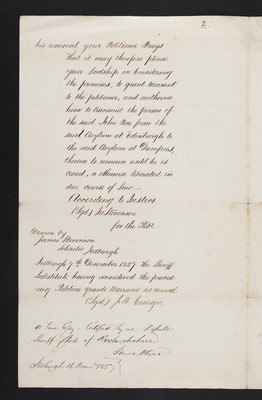 2.
his removal your Petitioner Prays
That it may therefore please
your Lordship on Considering
the premises, to grant warrant
to the petitioner, and authorise
him to transmit the person of
the said John from the
said Asylum at Edinburgh to
the said Asylum at Dumfries,
therein to remain until he is
cured, or otherwise liberated in
due course of law—
According to Justice
(Sgd) Js. Stevenson
for the Petr.
Drawn by
James Stevenson
Solicitor Jedburgh
Jedburgh 7th December 1857. The Sheriff
Substitute having considered the preced-
ing Petition grants Warrant as craved.
(Sgd)
a true Copy – Certified by me Depute
Sheriff Clerk of Roxburghshire
James
Jedburgh 1857